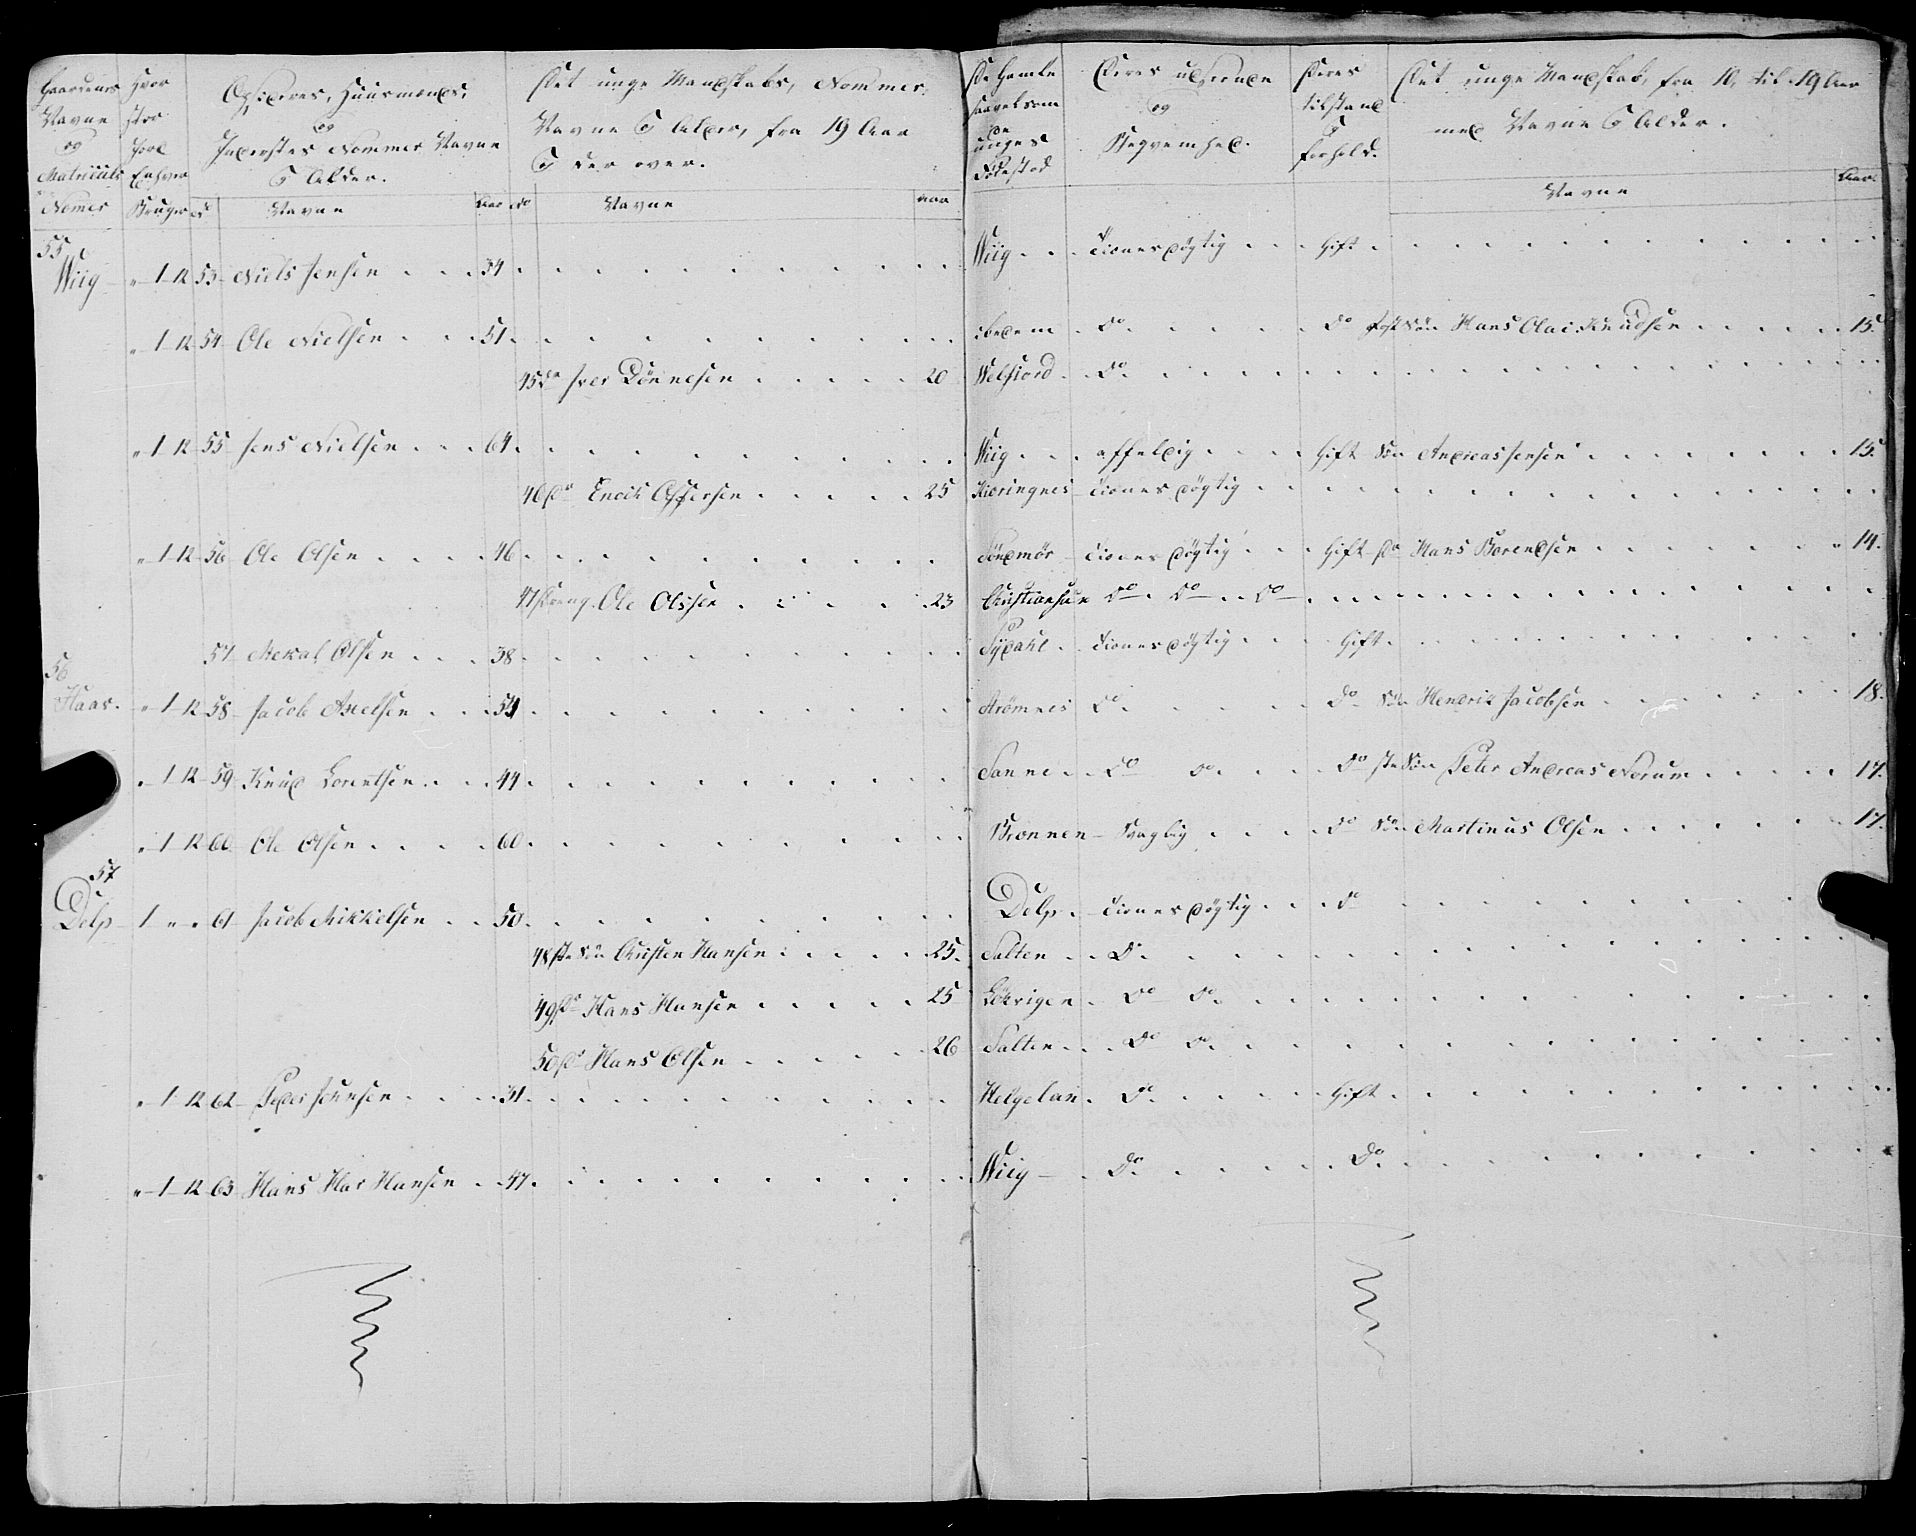 Gaardenes Navne og Matriculs Nomer
Hvor stor Jord Enhver Bruger
Opsidres, Huusmænds, og Inderstes Nommer Navne & Alder.
No Navne Aar
Det unge Mandskabs, Nommer, Navne & Alder, fra 19 Aar & der over.
No Navne aar
De Gamle saavelsom de unges Fødested
Deres udseende og Beqvemhed.
Deres tilstand & forhold.
Det unge Mandskab, fra 10, til 19 Aar med Navne & Alder.
Navne Aar
55
Wiig " 1 12 53 Niels Jensen 34 Wiig Tienesdøgtig Gift
" 1 12 54 Ole Nielsen 51 ibedem Do Do Søn Hans Olai Knudsen 15
45 Iver Dønnesen 20 Welfiord Do
" 1 12 55 Jens Nielsen 64 Wiig affeldig Gift Søn Andreas Jensen 15
46 Do Enoch Offersen 25 Kieringnes Tienesdøgtig
" 1 12 56 Ole Olsen 46 Søndmør Tienesdøgtig Gift Hans Berendsen 14
47 Dreng Ole Olsen 23 Christiansun Do Do Do
57 Mekal Olsen 38 Sÿdahl Tienesdøgtig Gift
56
Haar " 1 12 58 Jacob Axelsen Strømnes Do Do Søn Hendrik Jacobsen 18
" 1 12 59 Knud Lorentsen 44 Sanne Do Do Do SteSøn Peter Andreas Norum 17
" 1 12 60 Ole Olsen 60 Brønnen Svaglig Do Søn Martinus Olsen 17
57
Delp 1 " " 61 Jacob Mikkelsen 50 Delp Tienesdøgtig Do
48 SteSøn Christen Hansen 25 Salten Do
49 Do Hans Hansen 25 Do Do
50 Do Hans Olsen 26 Salten Do Do
" 1 12 62 Peder Jensen 31 Helgelan Do Gift
" 1 12 63 Hans Har Hansen 47 Wiig Do Do